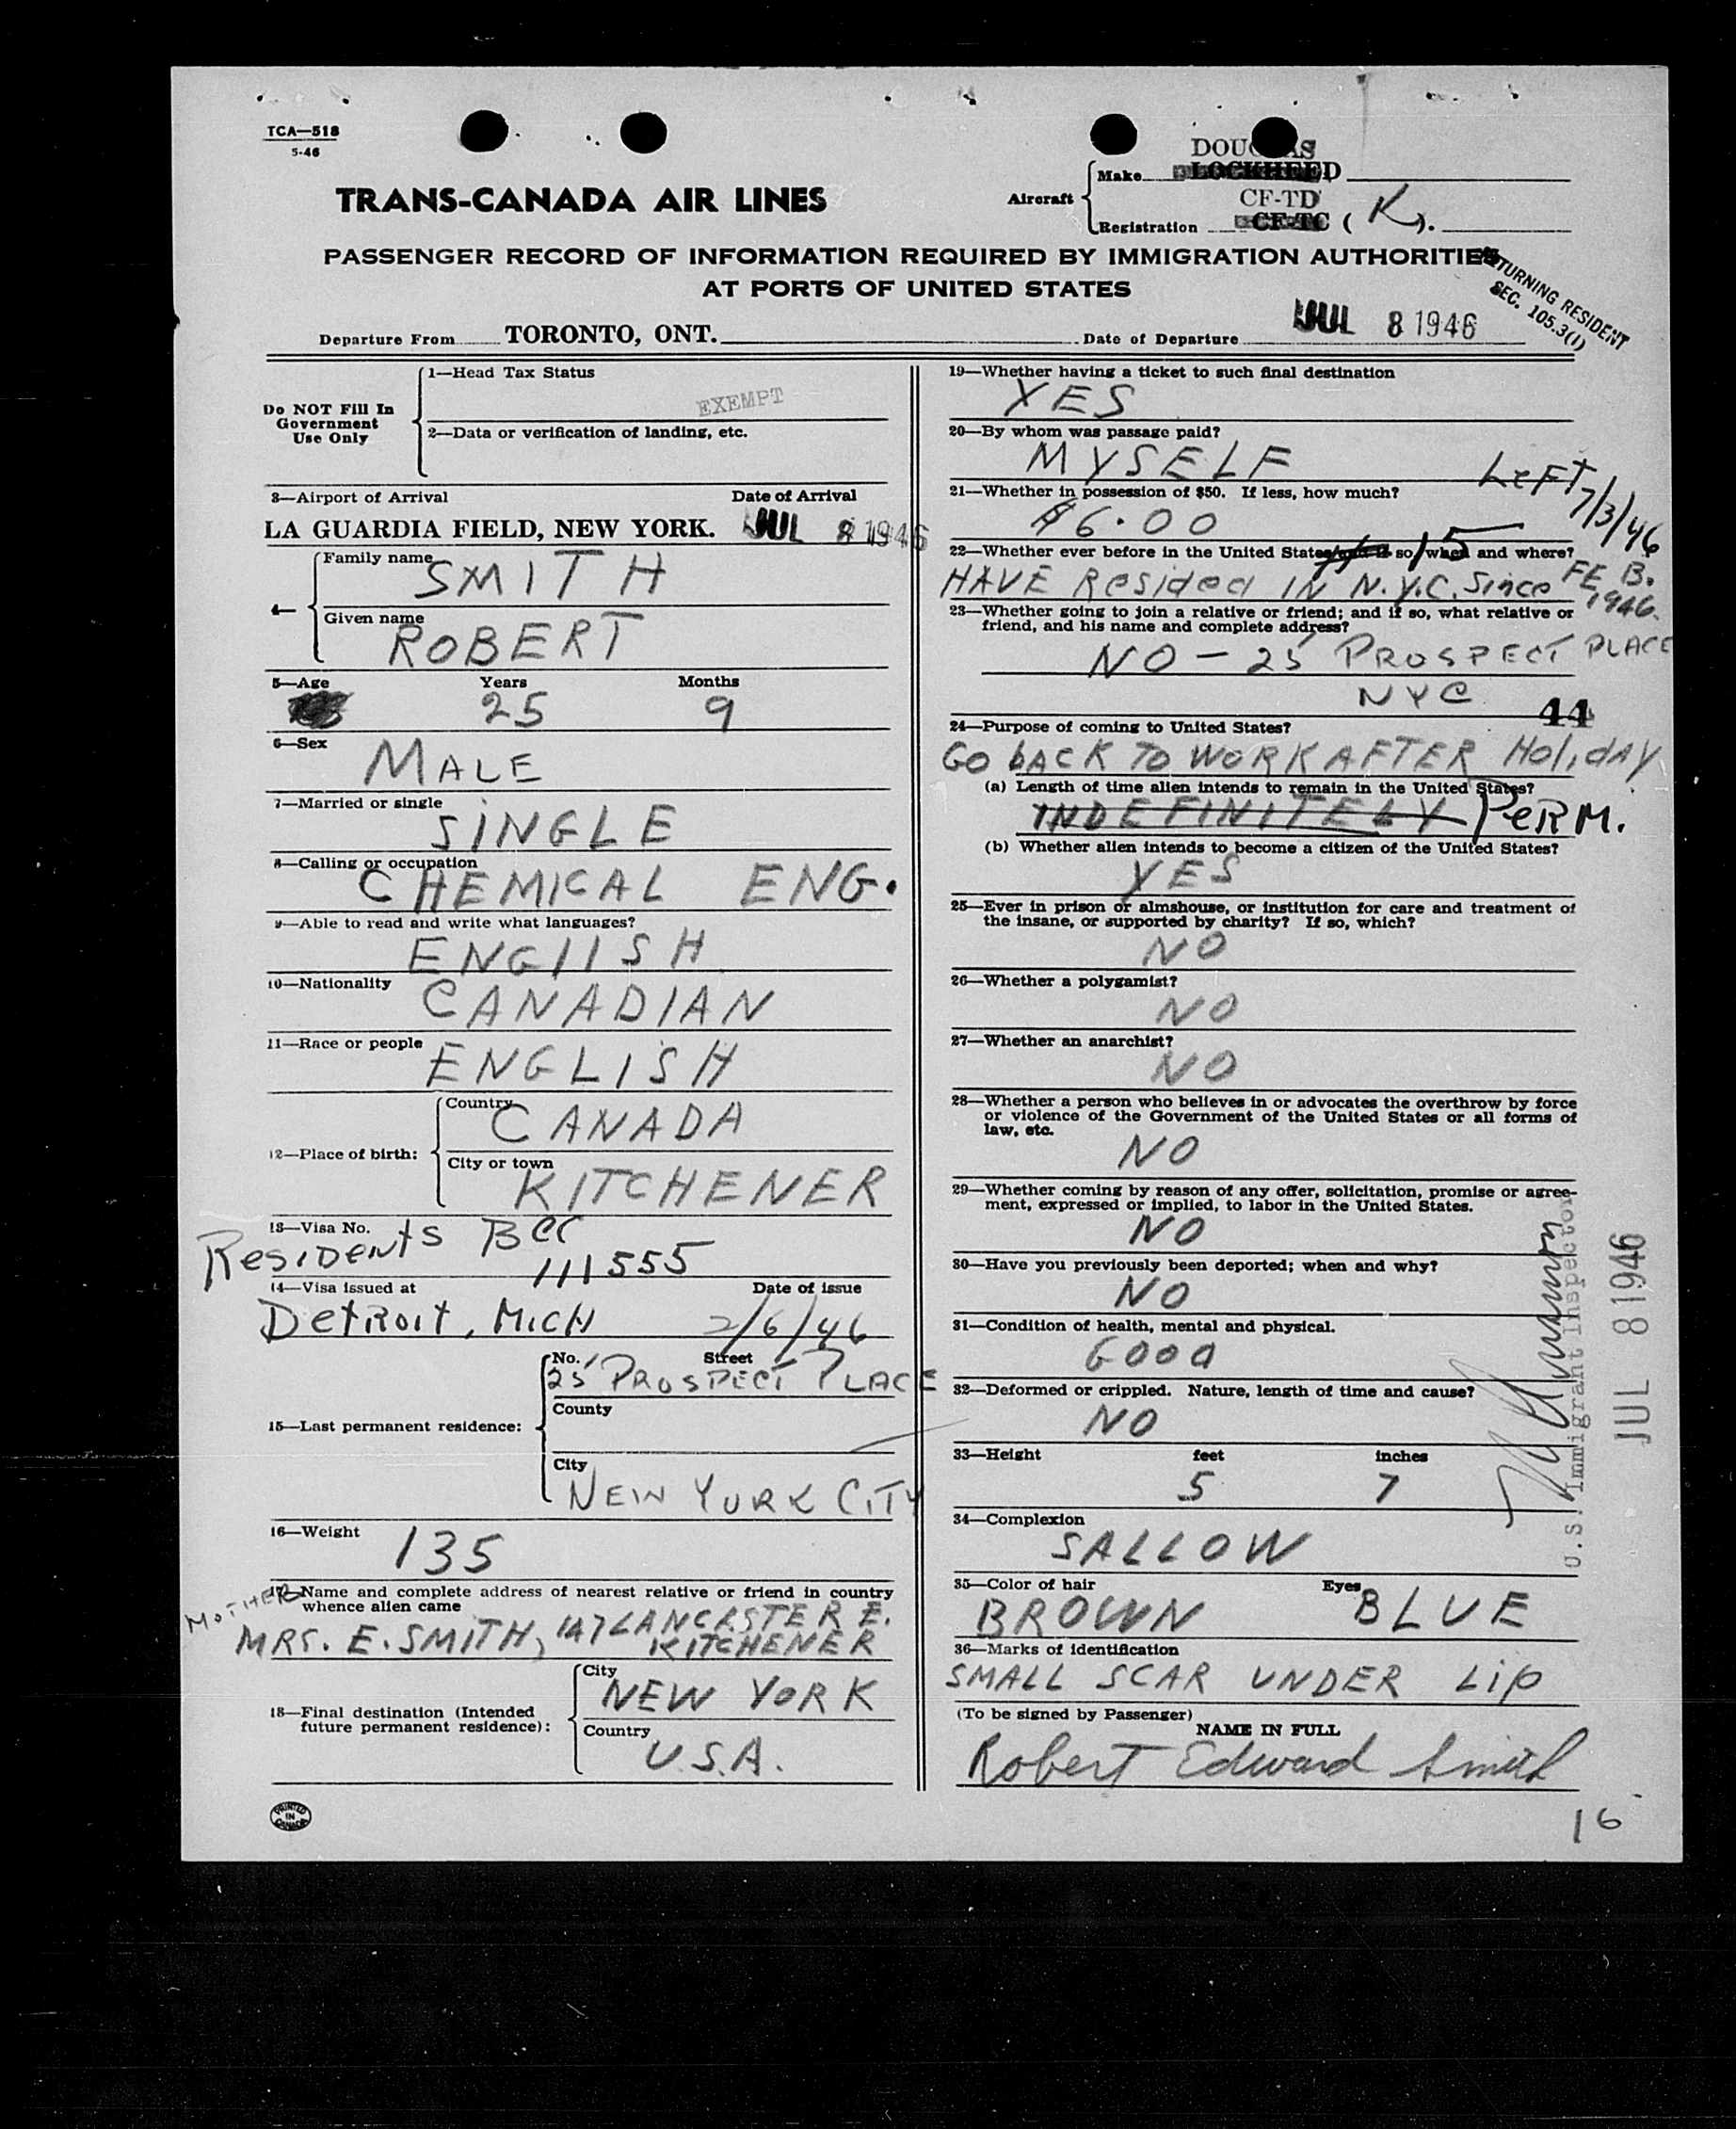 TCA—518
5-46
TRANS-CANADA AIR LINES
Aircraft
Make DOUGLAS
LOCKHEED
Registration CF-TD
CF-TC ( K ).
PASSENGER RECORD OF INFORMATION REQUIRED BY IMMIGRATION AUTHORITIES
AT PORTS OF UNITED STATES
RETURNING RESIDENT
SEC. 105.3(1)
Departure From TORONTO, ONT. Date of Departure JUL 8 1946
Do NOT Fill In
Government
Use Only
1—Head Tax Status
EXEMPT
2—Data or verification of landing, etc.
3—Airport of Arrival Date of Arrival
LA GUARDIA FIELD, NEW YORK. JUL 8 1946
4— Family name
SMITH
Given name
ROBERT
5—Age Years Months
25 9
6—Sex
MALE
7—Married or single
SINGLE
8—Calling or occupation
CHEMICAL ENG.
9—Able to read and write what languages?
ENGlISH
10—Nationality
CANADIAN
11—Race or people
ENGLISH
12—Place of birth:
Country
CANADA
City or town
KITCHENER
13—Visa No.
ResIDENtS BCC
111555
14—Visa issued at Date of issue
DetRoit, MICH 2/6/46
15—Last permanent residence:
No. Street
25 PROSPECT PLACE
County
City
NEW YORK CITY
16—Weight
135
17—Name and complete address of nearest relative or friend in country
whence alien came
MOTHER
MRS. E. SMITH, 147 LANCASTER E.
KITCHENER
18—Final destination (Intended
future permanent residence):
City
NEW YORK
Country
U.S.A.
PRINTED
IN
CANADA
19—Whether having a ticket to such final destination
YES
20—By whom was passage paid?
MYSELF
21—Whether in possession of $50. If less, how much?
$6.00
LeFT 7/3/46
22—Whether ever before in the United States, and if so, when and where?
HAVE Resided IN N.Y.C. Since FEB.
1946.
23—Whether going to join a relative or friend; and if so, what relative or
friend, and his name and complete address?
NO — 25 PROSPECT PLACE
NYC
44
24—Purpose of coming to United States?
GO bACK TO WORK AFTER HoliDAY
(a) Length of time alien intends to remain in the United States?
INDEFINITELY PeRM.
(b) Whether alien intends to become a citizen of the United States?
YES
25—Ever in prison or almshouse, or institution for care and treatment of
the insane, or supported by charity? If so, which?
NO
26—Whether a polygamist?
NO
27—Whether an anarchist?
NO
28—Whether a person who believes in or advocates the overthrow by force
or violence of the Government of the United States or all forms of
law, etc.
NO
29—Whether coming by reason of any offer, solicitation, promise or agree-
ment, expressed or implied, to labor in the United States.
NO
30—Have you previously been deported; when and why?
NO
31—Condition of health, mental and physical.
GOOD
32—Deformed or crippled. Nature, length of time and cause?
NO
33—Height feet inches
5 7
34—Complexion
SALLOW
35—Color of hair Eyes
BROWN BLUE
36—Marks of identification
SMALL SCAR UNDER LiP
(To be signed by Passenger)
NAME IN FULL
Robert Edward Smith
U.S. Immigrant Inspector
JUL 8 1946
16